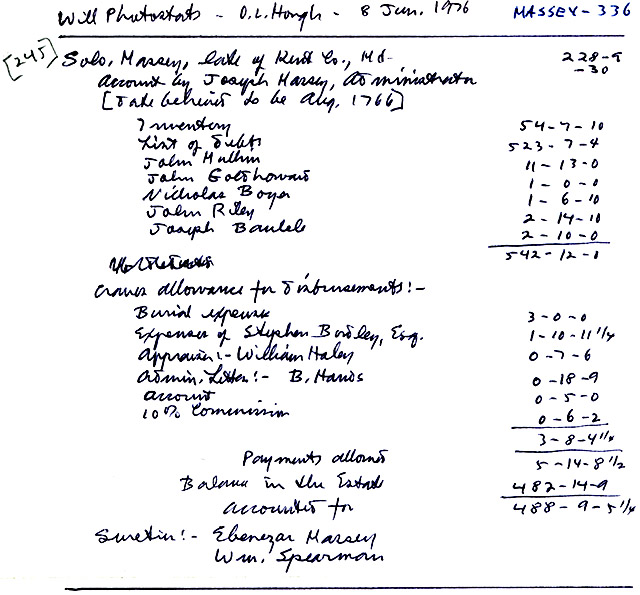 Will Photostats - O.L. Hough - 8 Jun. 1976 MASSEY-336
[245] Solo. Massey, late of Kent Co., Md. 228-9
Account by Joseph Massey, Administrator -30
[Date believed to be Aug. 1766]
Inventory 54-7-10
List of Debts 523-7-4
John 11-13-0
John 1-0-0
Nicholas Boyer 1-6-10
John Riley 2-14-10
Joseph 2-10-0
542-12-1
Craves allowance for disbursements:-
Burial expense 3-0-0
Expenses of Stephen Bordley, Esq. 1-10-11 1/4
Appraiser:- William Haley 0-7-6
Admin. Letter:- B. Hands 0-18-9
Account 0-5-0
10% Commission 0-6-2
3-8-4 1/4
Payments allowed 5-14-8 1/2
Balance in the Estate 482-14-9
accounted for 488-9-5 1/4
Sureties:- Ebenezar Massey
Wm. Spearman